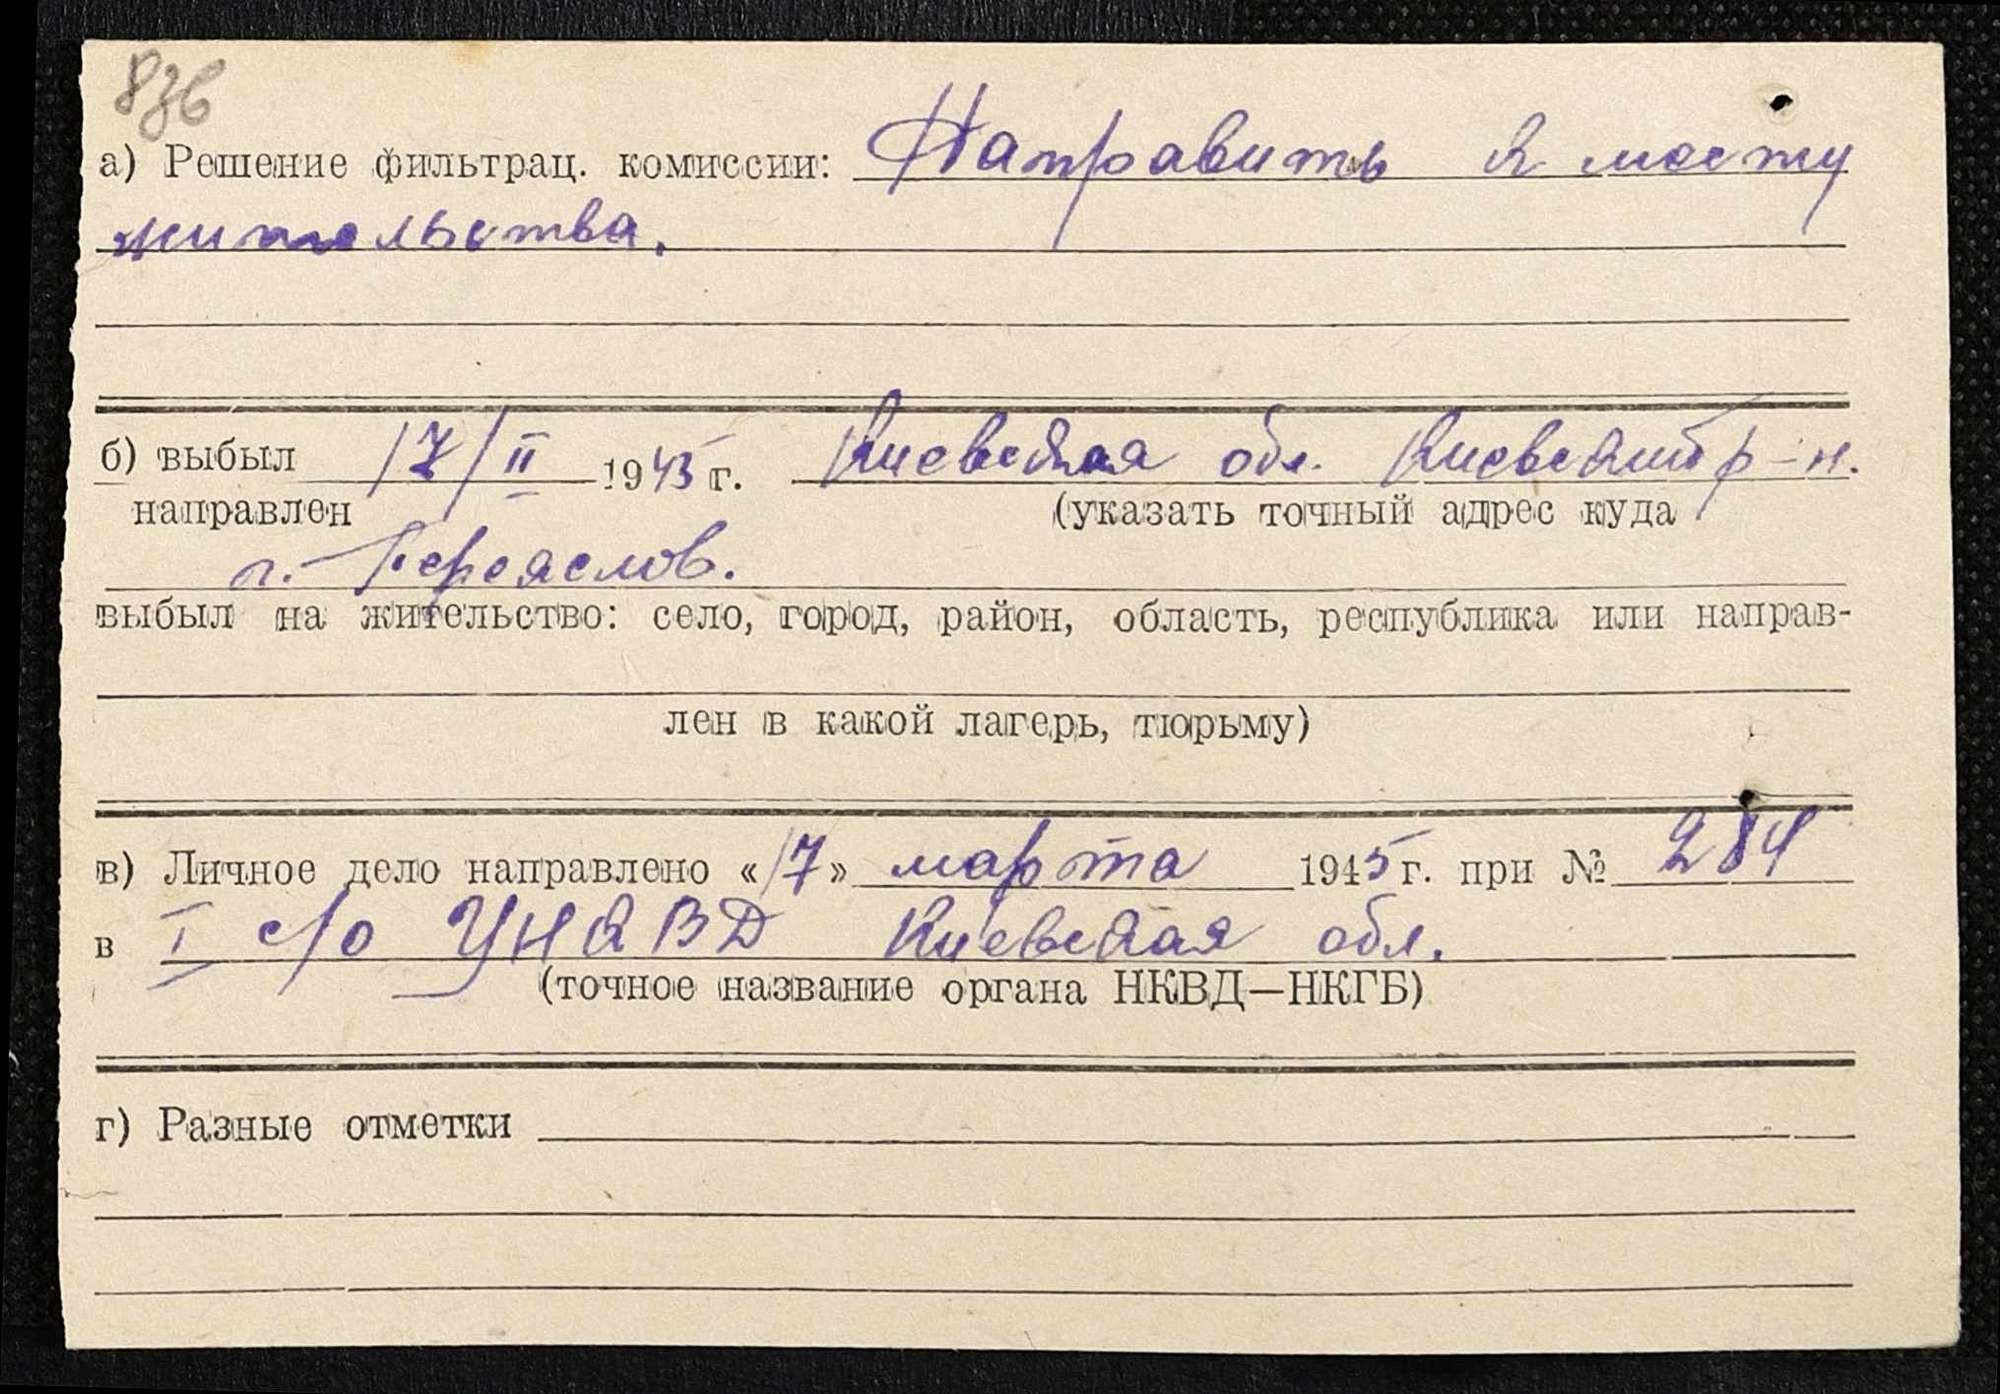 836
а) Решение фильтрац. комиссии: Направить к месту
жительства.
б) выбыл 17/II 1945 г. Киевская обл. Киевский р-н.
направлен (указать точный адрес куда
г. Переяслов.
выбыл на жительство: село, город, район, область, республика или направ-
лен в какой лагерь, тюрьму)
в) Личное дело направлено «17» марта 1945 г. при № 284
в I с/о УНКВД Киевская обл.
(точное название органа НКВД—НКГБ)
г) Разные отметки